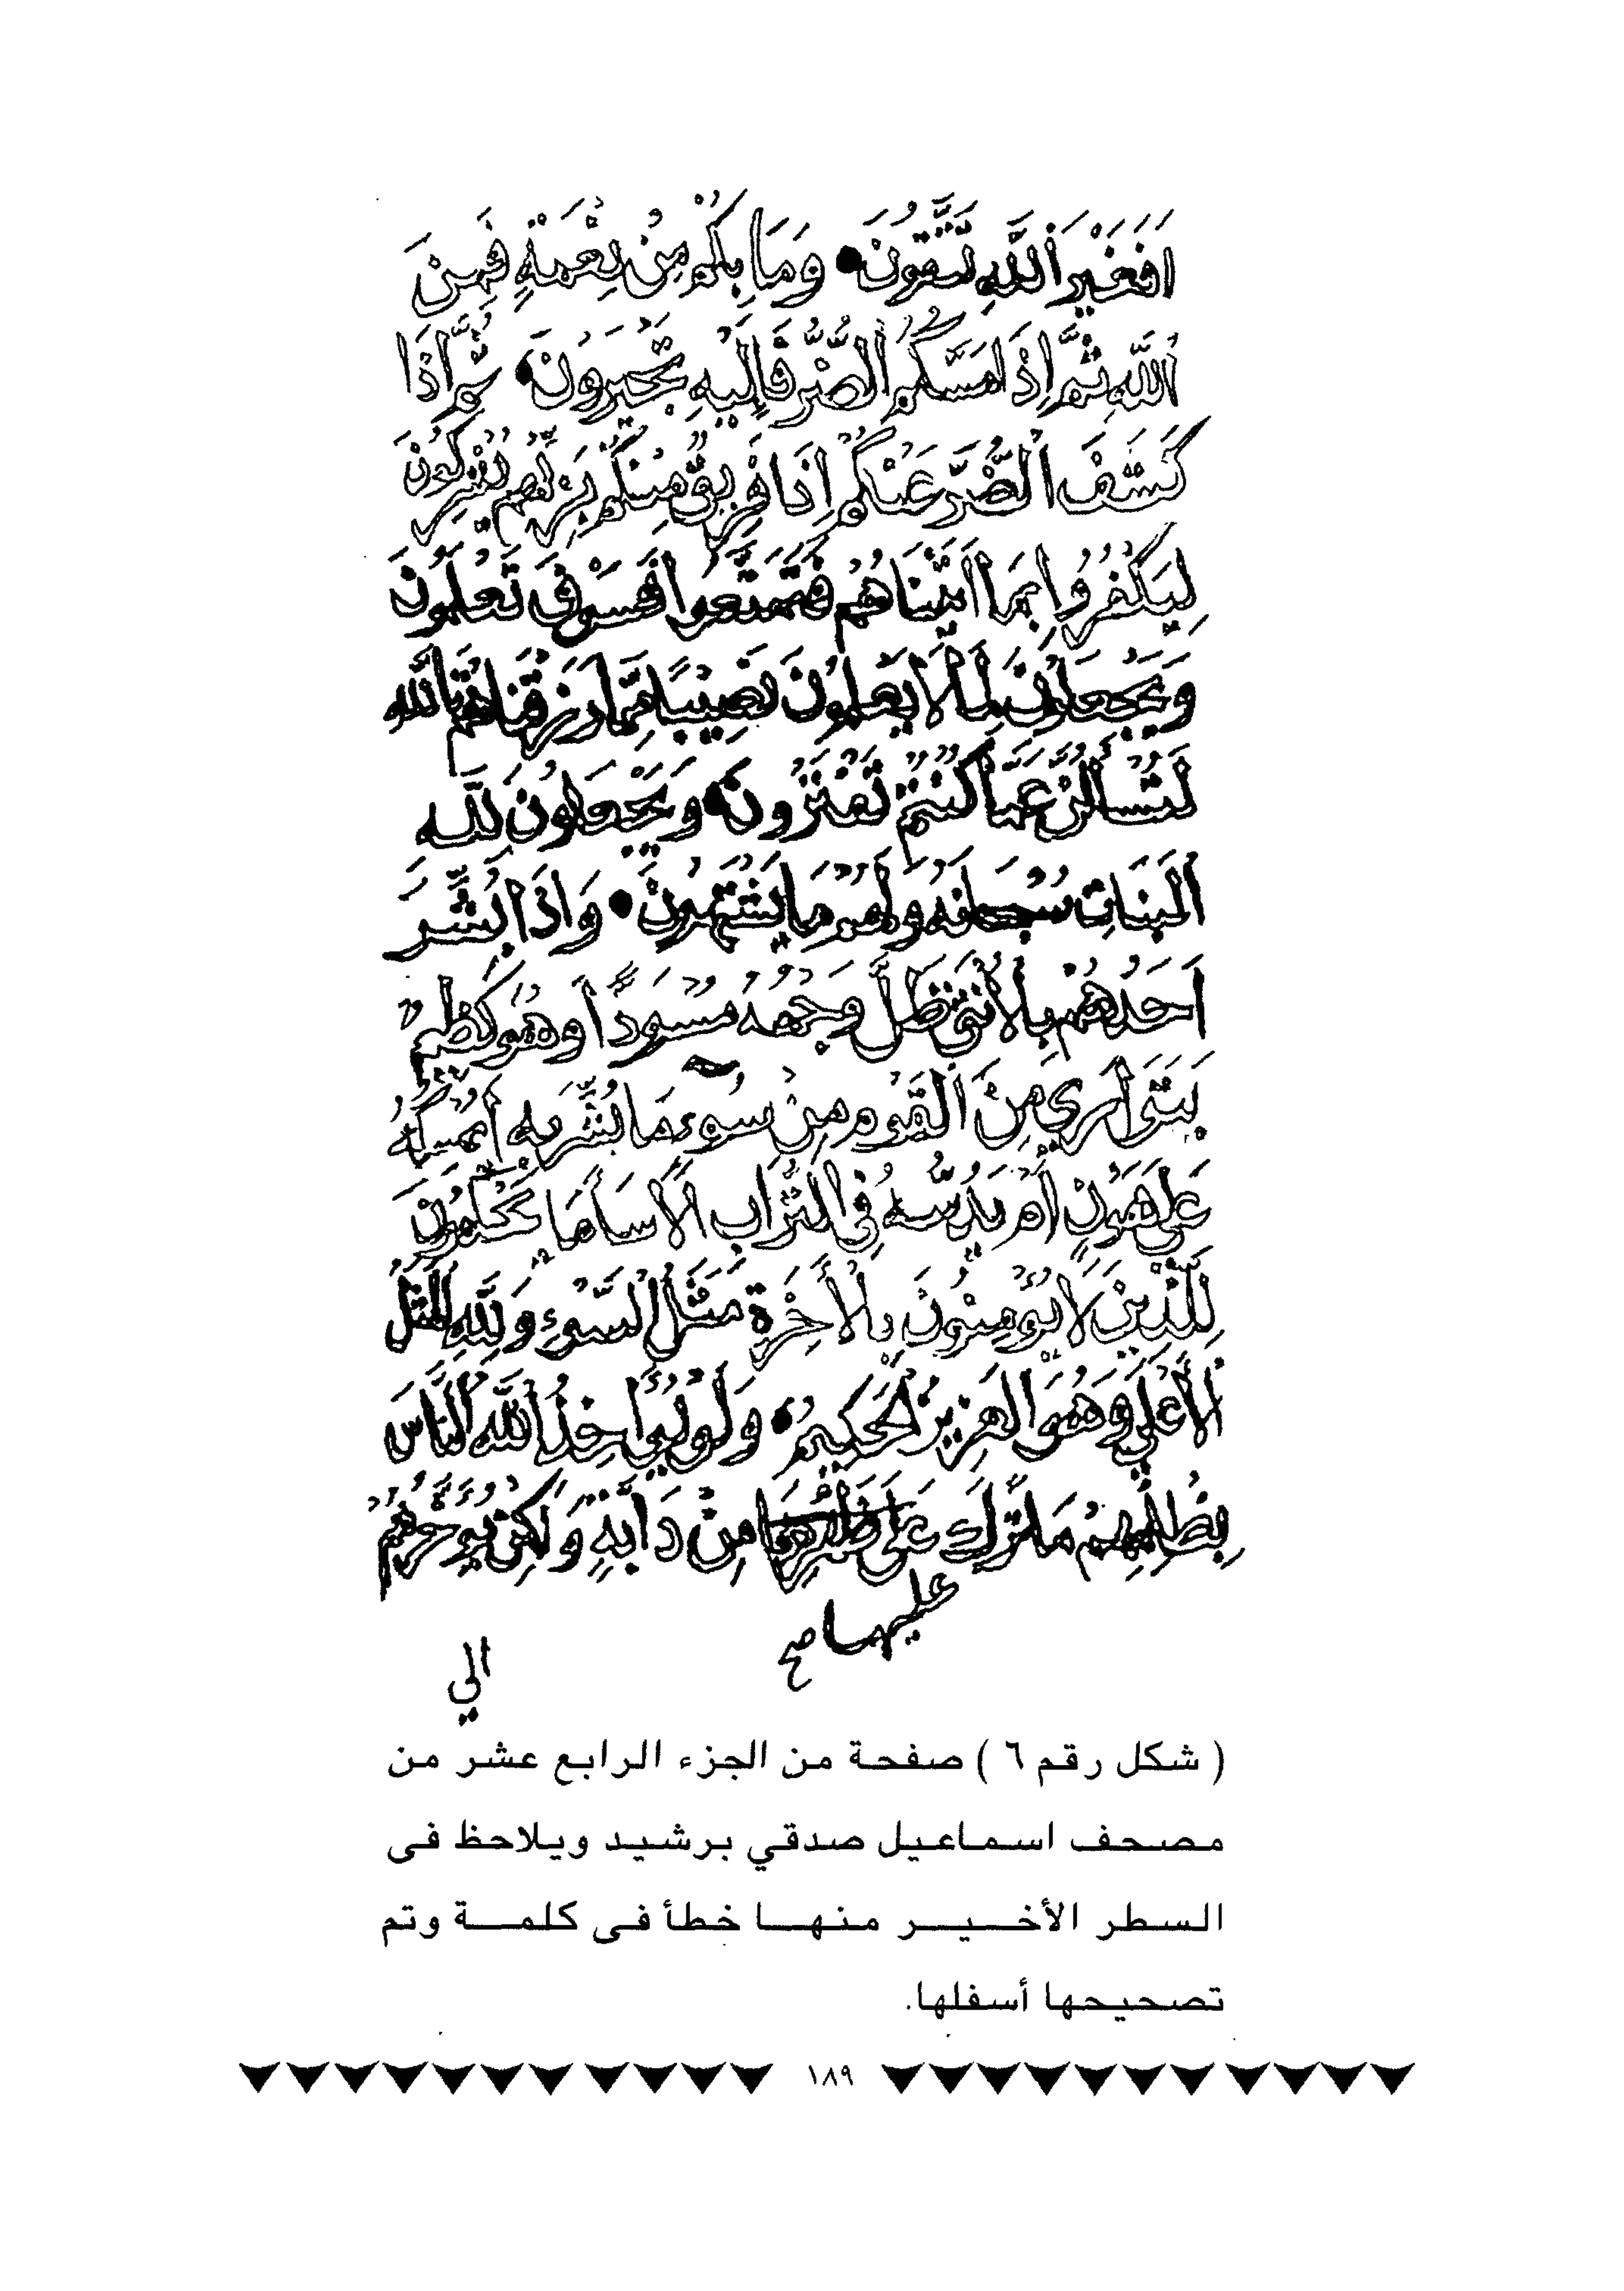 اَفَغَيْرَ اللَّهِ تَتَّقُونَ وَمَا بِكُمْ مِنْ نِعْمَةٍ فَمِنَ
اللَّهِ ثُمَّ اِذَا مَسَّكُمُ الضُّرُّ فَاِلَيْهِ تَجْـَٔرُونَ ثُمَّ اِذَا
كَشَفَ الضُّرَّ عَنْكُمْ اِذَا فَرِيقٌ مِنْكُمْ بِرَبِّهِمْ يُشْرِكُونَ
لِيَكْفُرُوا بِمَا اٰتَيْنَاهُمْ فَتَمَتَّعُوا فَسَوْفَ تَعْلَمُونَ
وَيَجْعَلُونَ لِمَا لَا يَعْلَمُونَ نَصِيبًا مِمَّا رَزَقْنَاهُمْ تَاللَّهِ
لَتُسْأَلُنَّ عَمَّا كُنْتُمْ تَفْتَرُونَ وَيَجْعَلُونَ لِلَّهِ
الْبَنَاتِ سُبْحَانَهُ وَلَهُمْ مَا يَشْتَهُونَ وَاِذَا بُشِّرَ
اَحَدُهُمْ بِالْأُنْثَى ظَلَّ وَجْهُهُ مُسْوَدًّا وَهُوَ كَظِيمٌ
يَتَوَارَي مِنَ الْقَوْمِ مِنْ سُوءِ مَا بُشِّرَ بِهِ أَيُمْسِكُهُ
عَلَي هُونٍ أَمْ يَدُسُّهُ فِي التُّرَابِ أَلَا سَآءَ مَا يَحْكُمُونَ
لِلَّذِينَ لَا يُؤْمِنُونَ بِالْأَخِرَةِ مَثَلُ السَّوْءِ وَلِلَّهِ الْمَثَلُ
الْأَعْلَي وَهُوَ الْعَزِيزُ الْحَكِيمُ وَلَوْ يُؤَاخِذُ اللَّهُ النَّاسَ
بِظُلْمِهِمْ مَا تَرَكَ عَلَى ظَهْرِهَا مِنْ دَآبَّةٍ وَلَكِنْ يُؤَخِّرُهُمْ
عليها صح
الي
( شكل رقم ٦ ) صفحة من الجزء الرابع عشر من
مصحف اسماعيل صدقي برشيد ويلاحظ فى
السطر الأخير منها خطأ فى كلمة وتم
تصحيحها أسفلها.
١٨٩